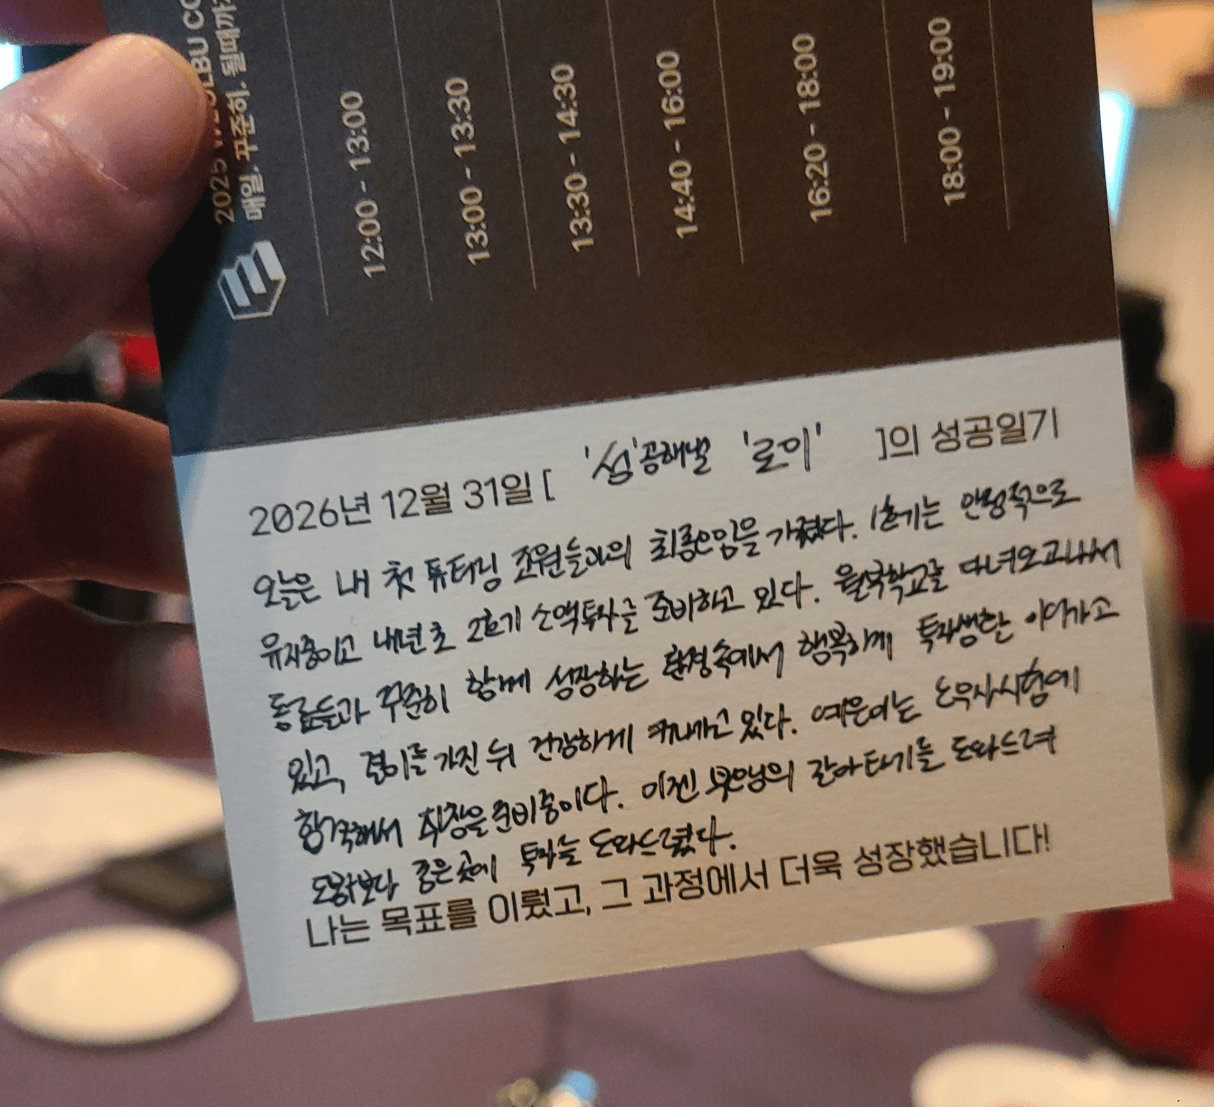 2025 WEOLBU CO
매일. 꾸준히. 될때까지
12:00 - 13:00
13:00 - 13:30
13:30 - 14:30
14:40 - 16:00
16:20 - 18:00
18:00 - 19:00
2026년 12월 31일 [ '섬'공해낼 '로이' ]의 성공일기
오늘은 내 첫 튜터링 조원들과의 최종모임을 가졌다. 1호기는 안정적으로
유지중이고 내년초 2호기 소액투자를 준비하고 있다. 월부학교를 다녀오고나서
동료들과 꾸준히 함께 성장하는 환경속에서 행복하게 투자생활 이어가고
있고, 결이를 가진 뒤 건강하게 커나가고 있다. 예은이는 논무사시험에
합격해서 취장을 준비중이다. 이젠 부모님의 갈아타기를 도와드려
보다 좋은곳에 투자를 도와드렸다.
나는 목표를 이뤘고, 그 과정에서 더욱 성장했습니다!